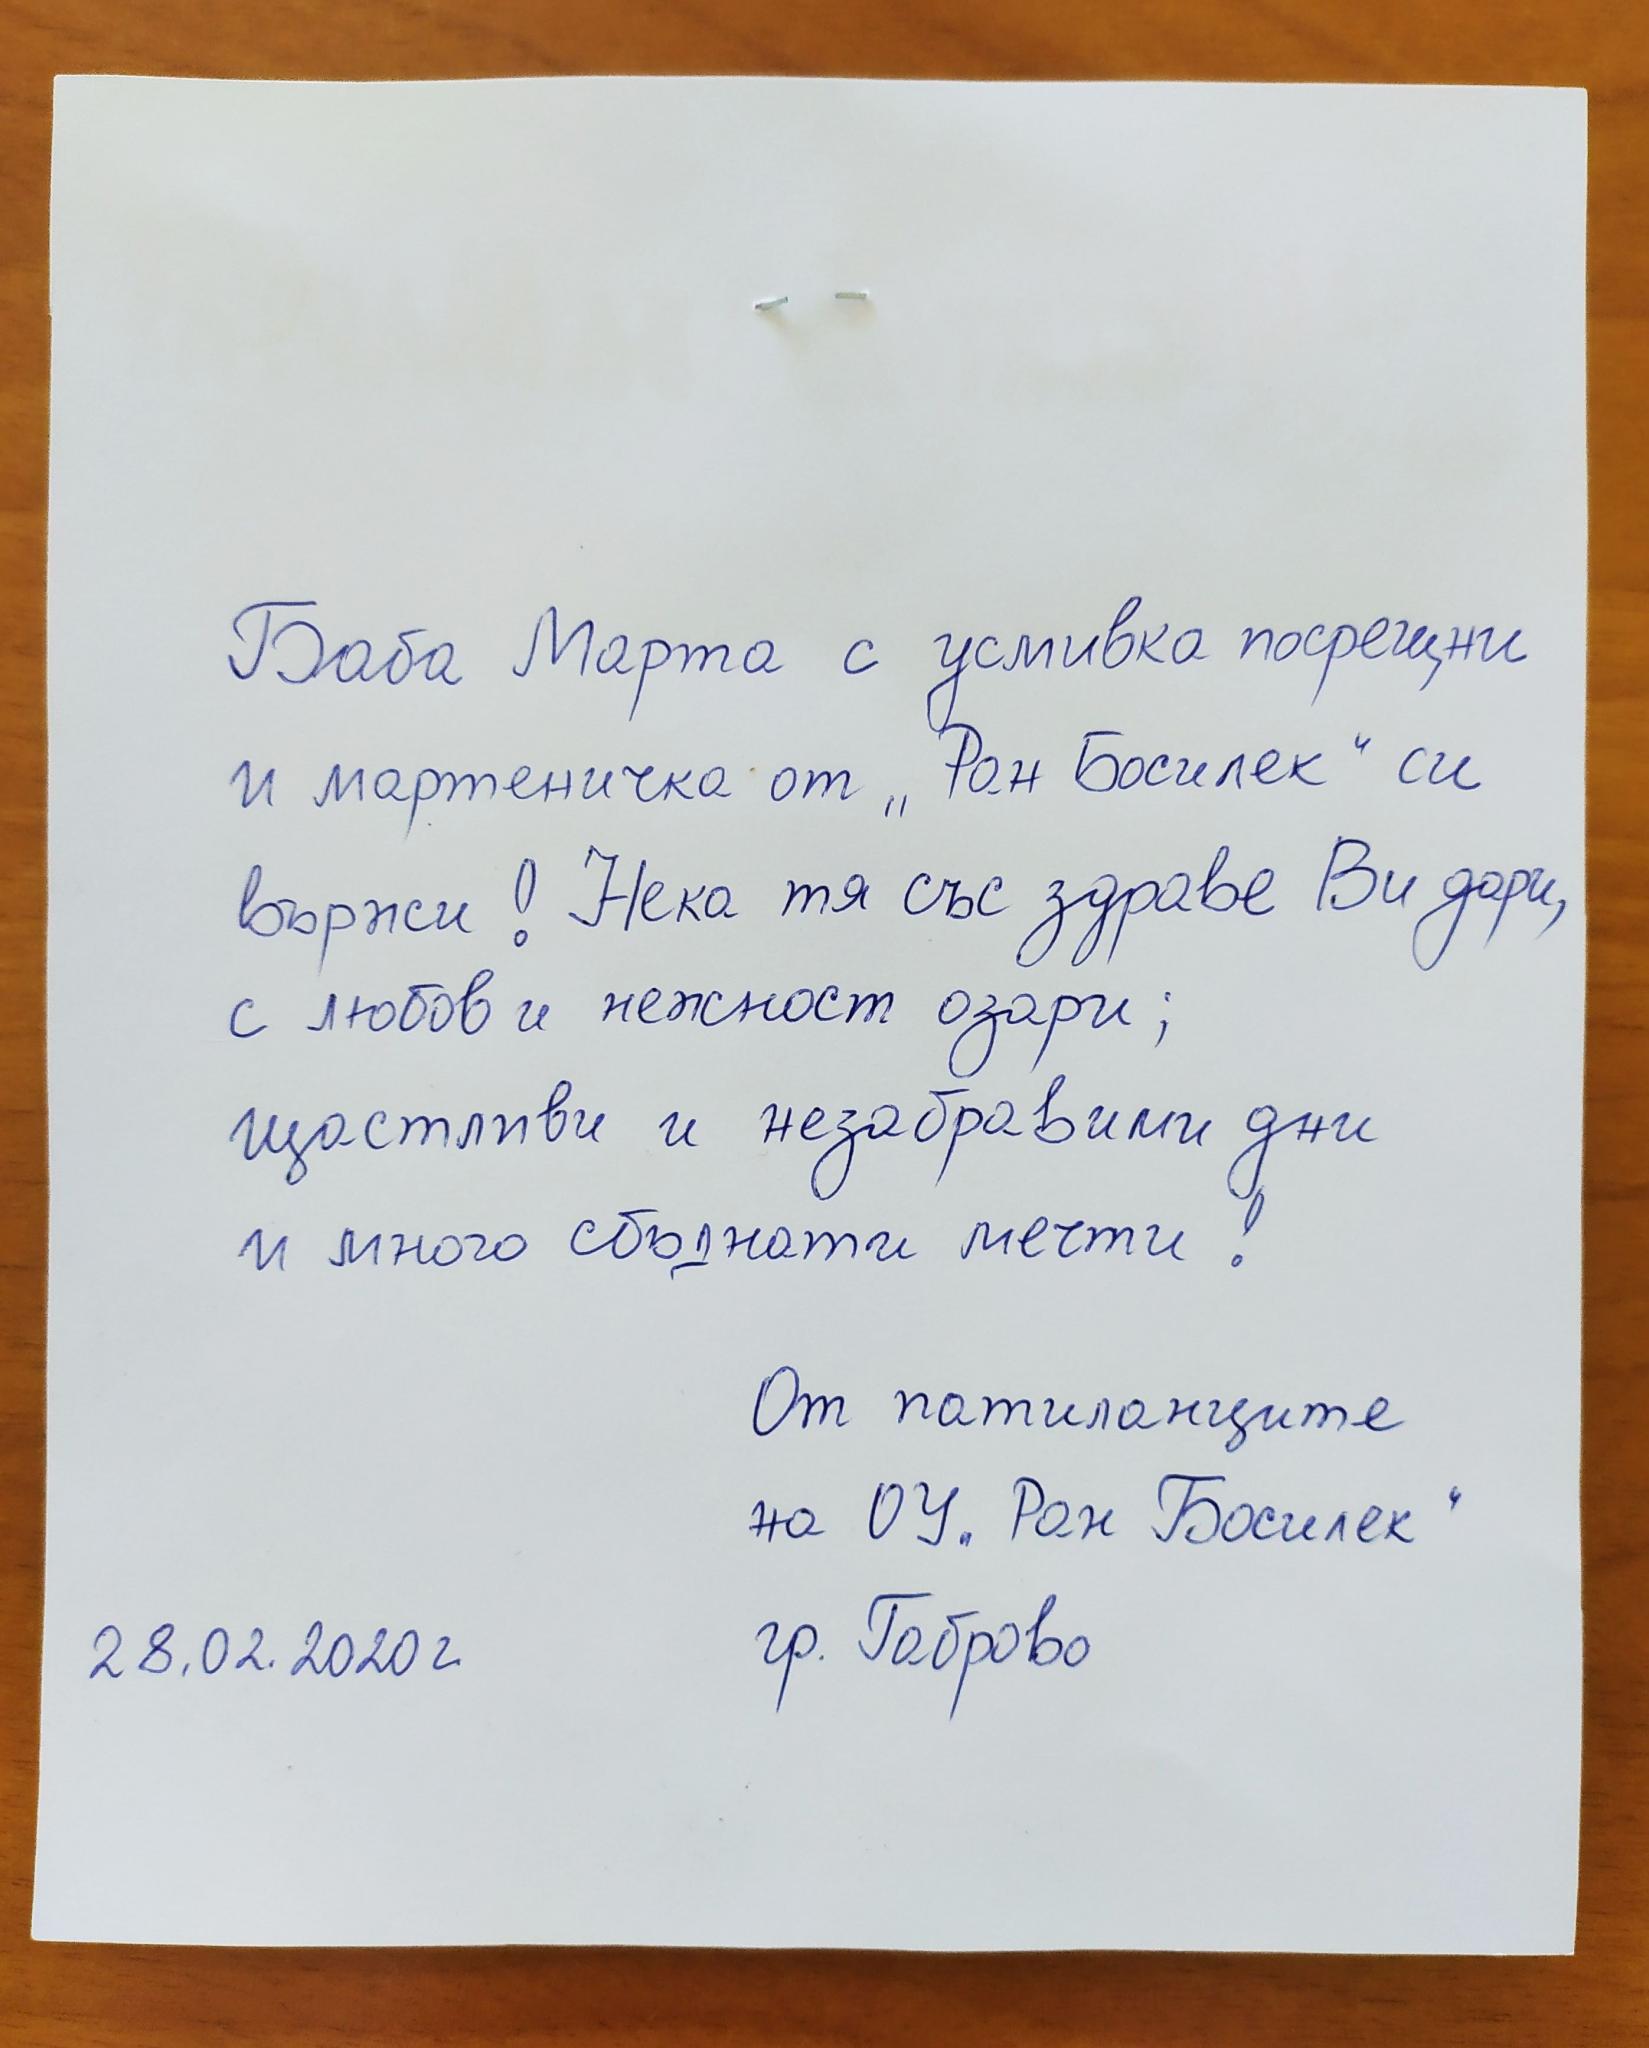 Баба Марта с усмивка посрещни
и мартеничка от „Ран Босилек“ си
вържи! Нека тя със здраве Ви дари,
с любов и нежност озари;
щастливи и незабравими дни
и много сбъднати мечти!
От патиланците
на ОУ „Ран Босилек“
гр. Габрово
28.02.2020г.